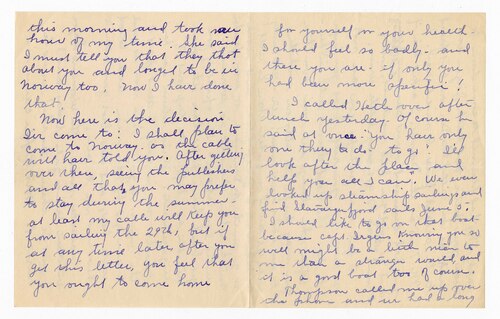 this morning and took an
hour of my time. She said
I must tell you that they thot
about you and longed to be in
Norway too. Now I have done
that.
Now here is the decision
I've come to: I shall plan to
come to Norway as the cable
will have told you. After getting
over there, seeing the publishers
and all that you may prefer
to stay during the summer.
at least my cable will keep you
from sailing the 29th, but if
at any time later, after you
get this letter, you feel that
you ought to come home
for yourself or your health
I should feel so badly - and
there you are - if only you
had been more specific!
I called over after
lunch yesterday. Of course he
said at once: "you have only
one thing to do - to go! I'll
look after the place and
help you all I can." We even
looked up steamship sailings and
find Stavangerfjord sails June 5.
I should like to go on that boat
because Capt. Irgens knowing you so
well might be a little nicer to
me than a stranger would and
it is a good boat too of course.
Thompson called me up over
the phone and we had a long